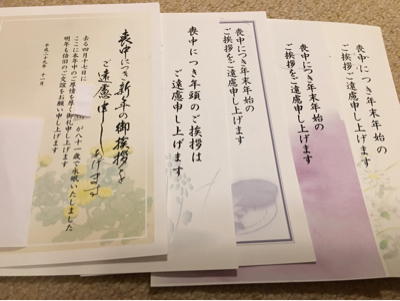 喪中につき新年の御挨拶を
ご遠慮申し上げます
去る四月十七日に
が八十一歳で永眠いたしました
ここに本年中のご厚情を厚く御礼申し上げます
明年も倍旧のご交誼をお願い申し上げます
平成二十九年 十一月
喪中につき年頭のご挨拶は
ご遠慮申し上げます
喪中につき年末年始の
ご挨拶をご遠慮申し上げます
喪中につき年末年始の
ご挨拶をご遠慮申し上げます
喪中につき年末年始の
ご挨拶をご遠慮申し上げます